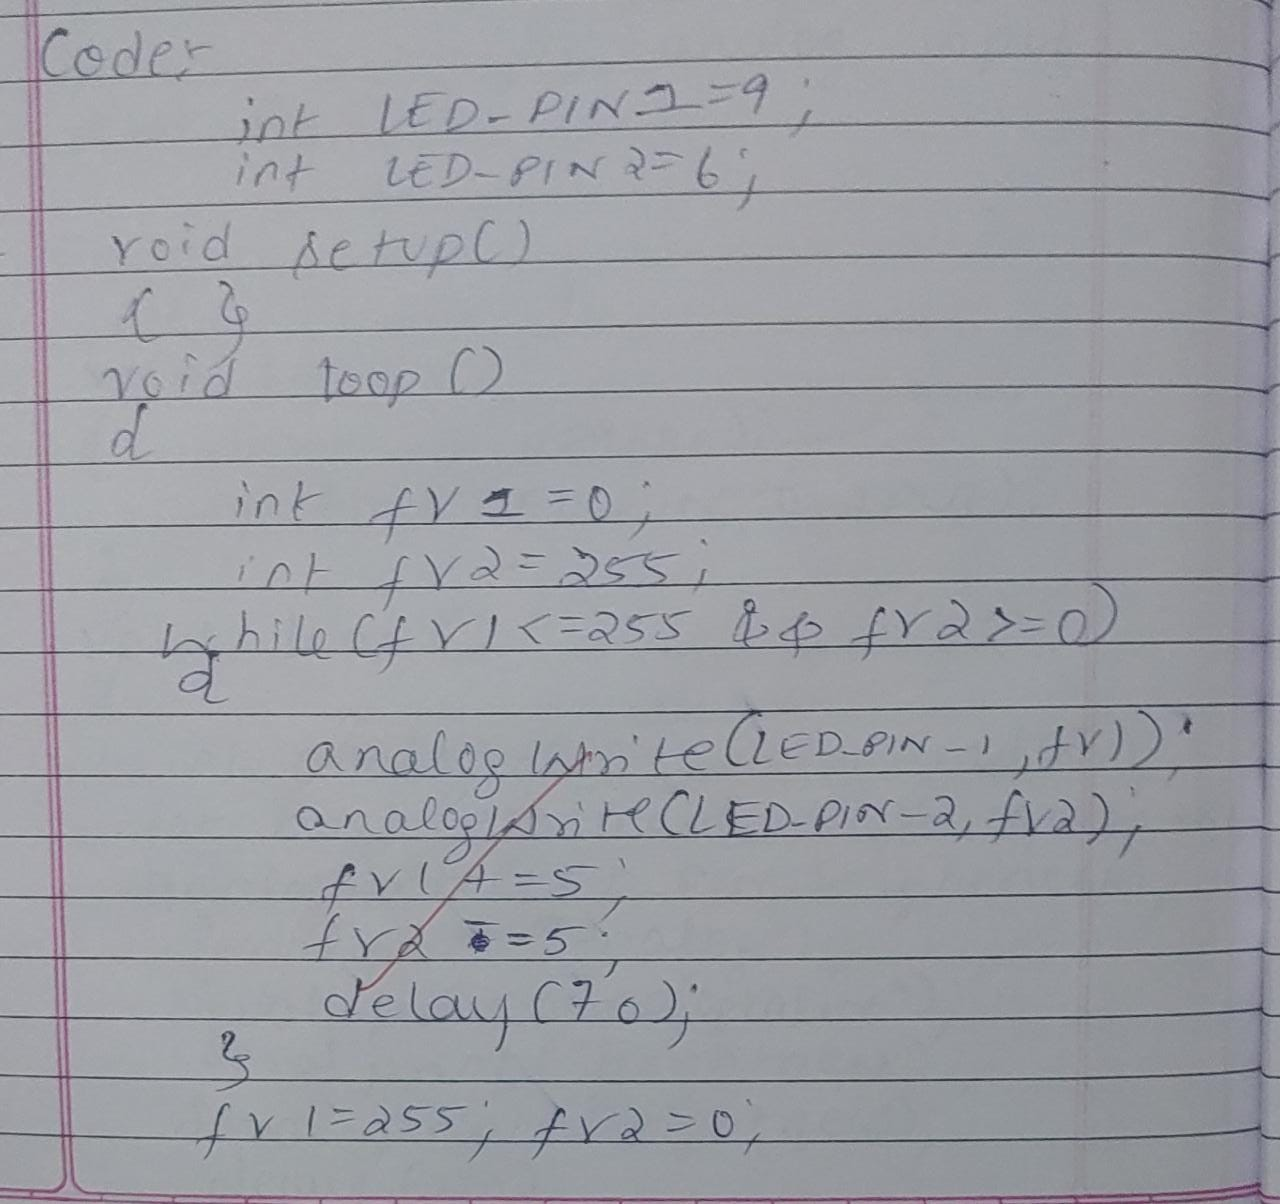 Code:-
int LED-PIN1=9;
int LED-PIN2=6;
void setup()
{ }
void loop()
{
int fv1=0;
int fv2=255;
while(fv1<=255 && fv2>=0)
{
analogWrite(LED-PIN-1,fv1);
analogWrite(LED-PIN-2,fv2);
fv1+=5;
fv2-=5;
delay(70);
}
fv1=255; fv2=0;